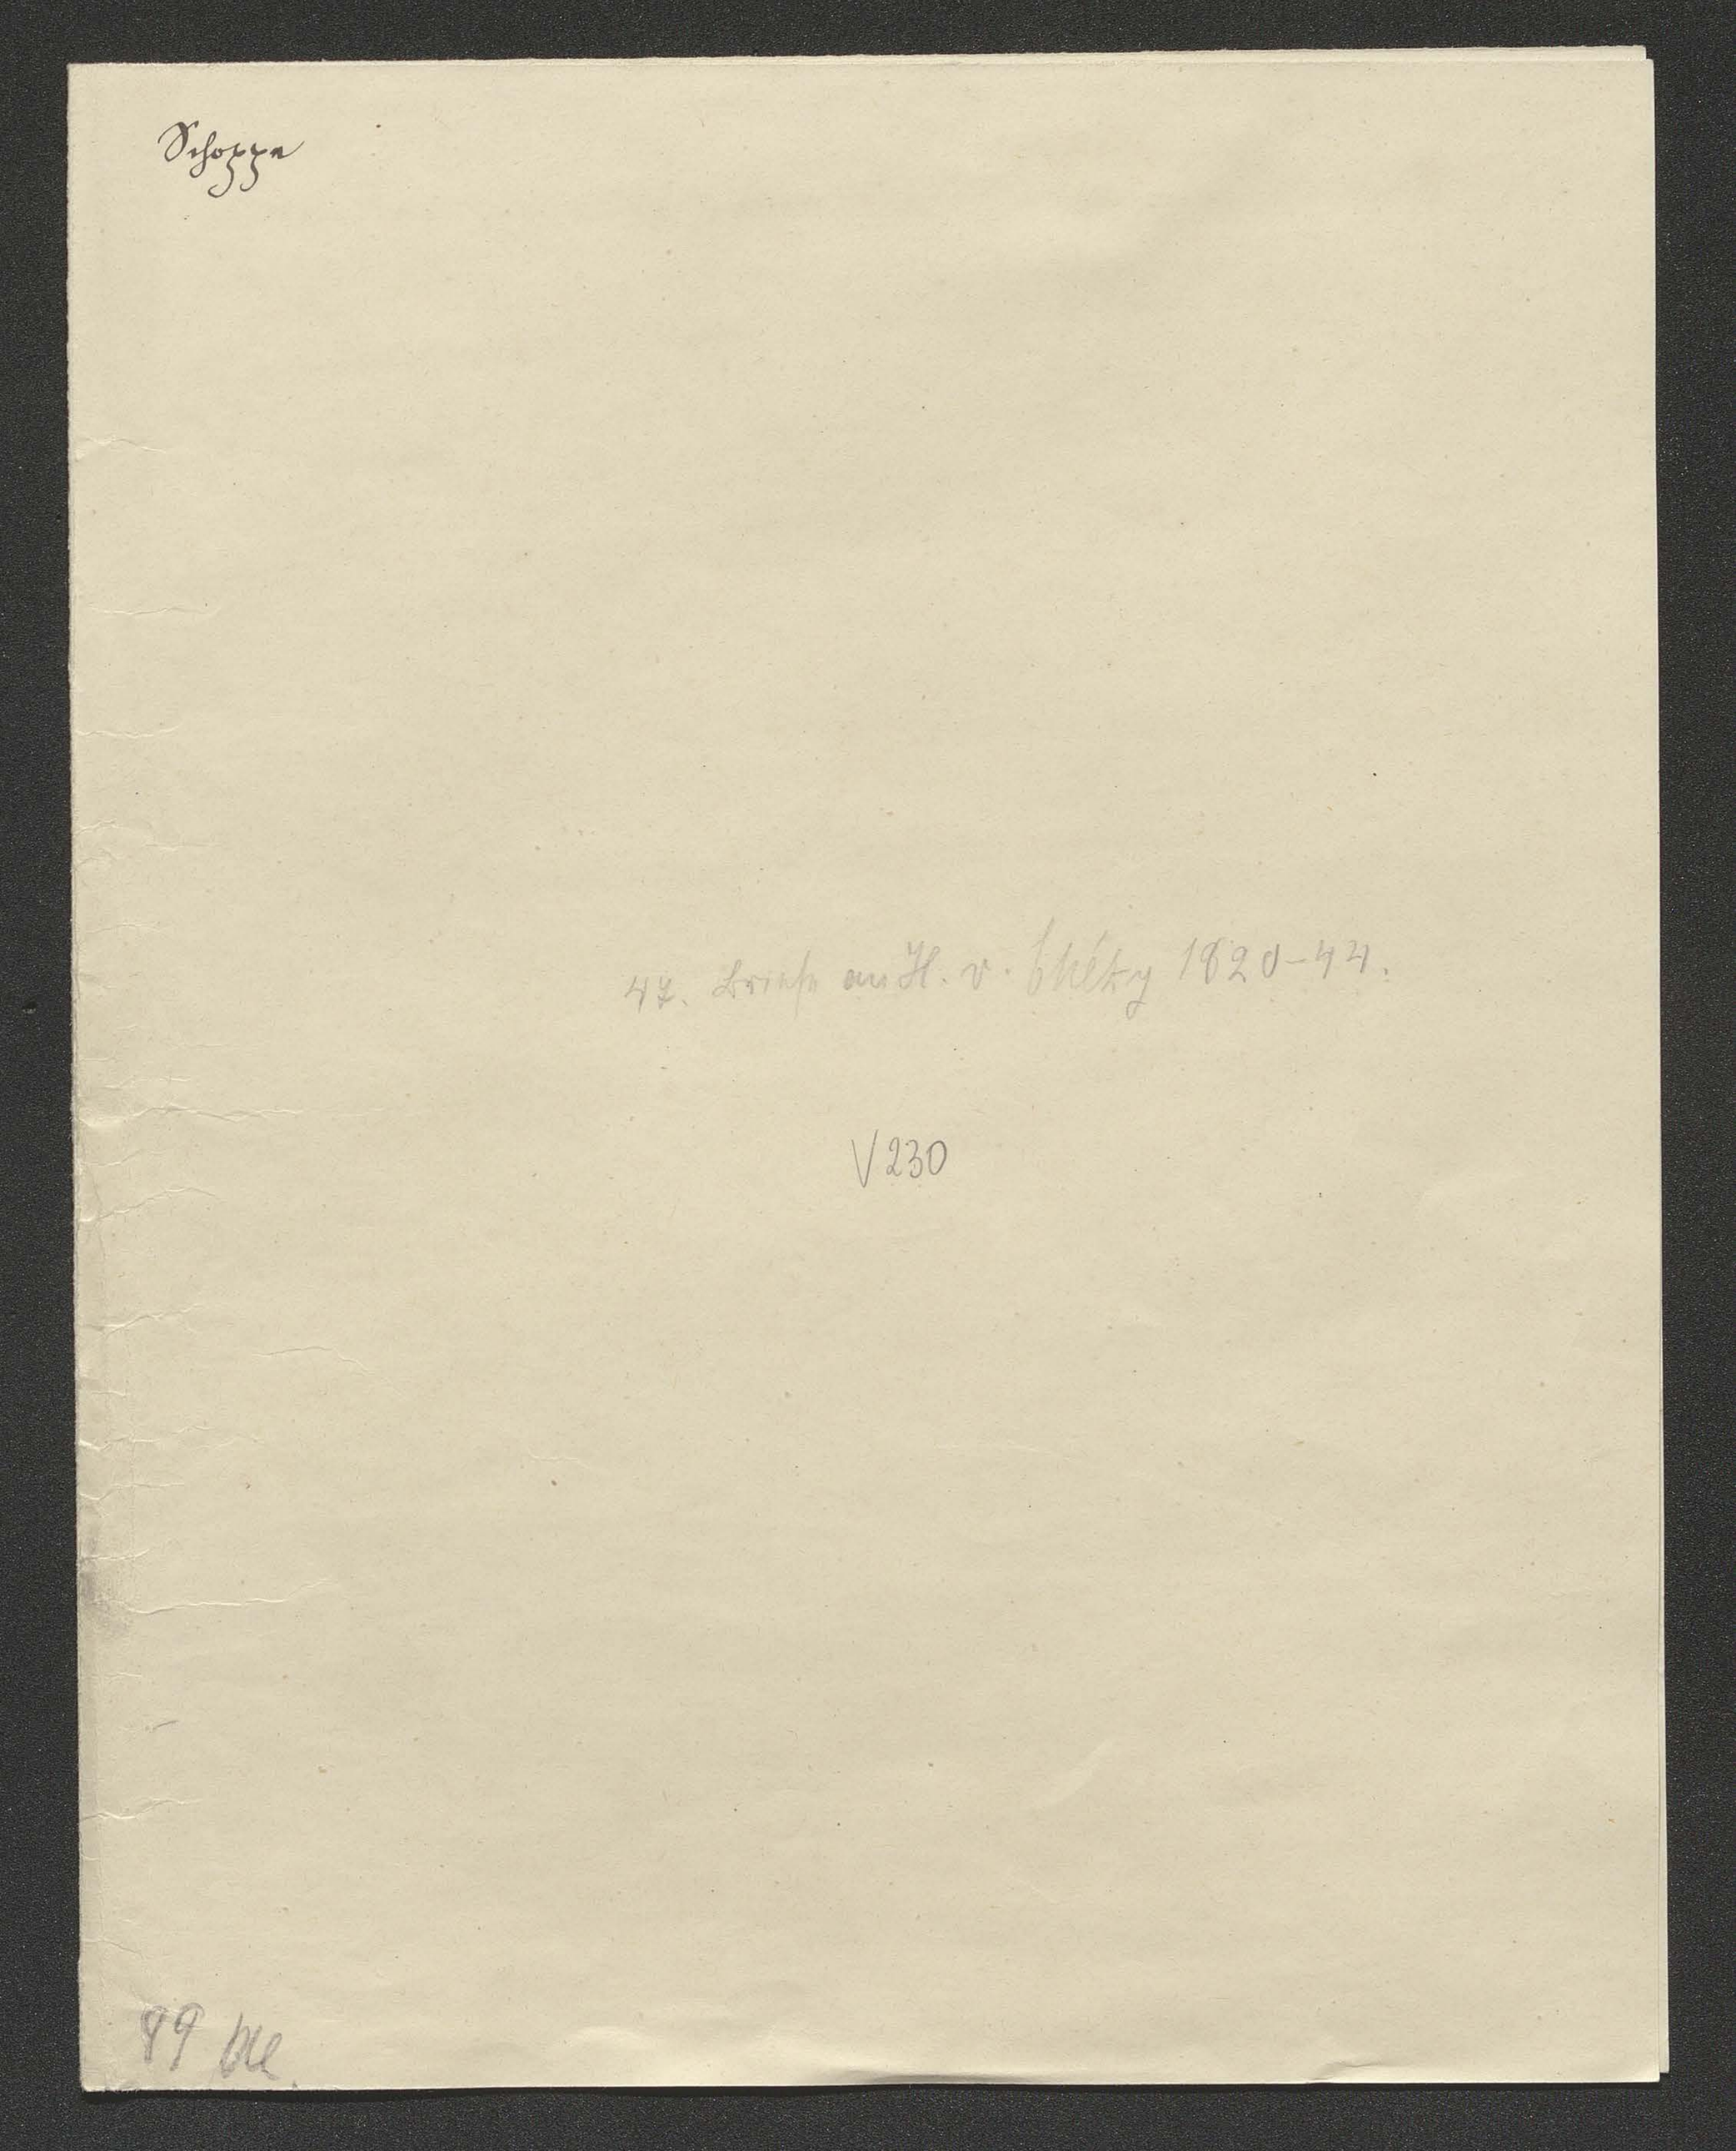 Schoppe
47. Briefe an H. v. Chézy 1820-44.
V 230
89 Bll.